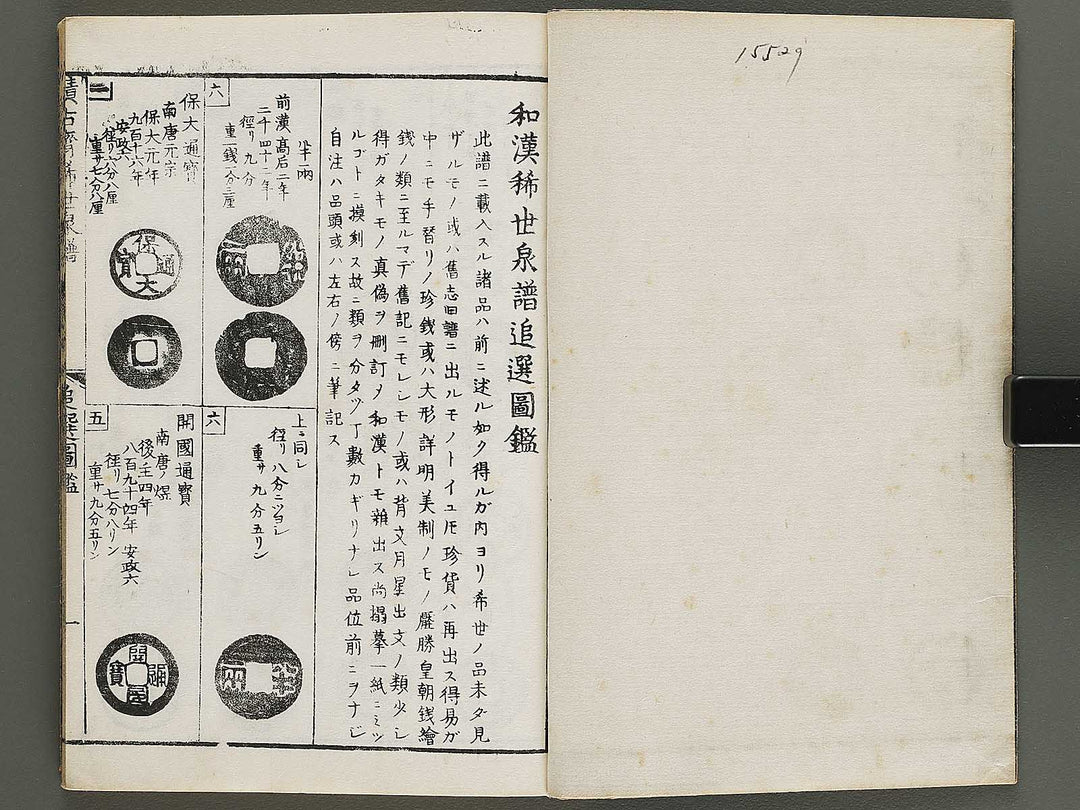 15529
和漢稀世泉譜追選圖鑑
此譜ニ載入スル諸品ハ前ニ述ル如ク得ルガ内ヨリ希世ノ品未タ見
ザルモノ或ハ舊志旧譜ニ出ルモノトイユ𪜈珍貨ハ再出ス得易ガ
中ニモ手替リノ珍銭或ハ大形詳明美制ノモノ厭勝皇朝銭繪
銭ノ類ニ至ルマデ舊記ニモレシモノ或ハ背文月星出文ノ類少シ
得ガタキモノ真偽ヲ刪訂〆和漢トモ雜出ス尚搨摹一紙ニミツ
ルゴトニ摸刻ス故ニ類ヲ分タツ丁數カギリナシ品位前ニヲナジ
自注ハ品頭或ハ左右ノ傍ニ筆記ス
六
半兩
前漢高后二年
二千四十二年
徑リ九分
重一銭一分三厘
半兩
六
上ニ同シ
徑リ八分ニツヨシ
重サ九分五リン
半兩
二
保大通寳
南唐元宗
保大元年
九百十六年
安政六
徑リ六分八厘
重サ七分八厘
保大通寳
五
開國通寳
南唐ノ煜
後主四年
八百九十四年 安政六
徑リ七分八リン
重サ九分五リン
開國通寳
追選圖鑑
一